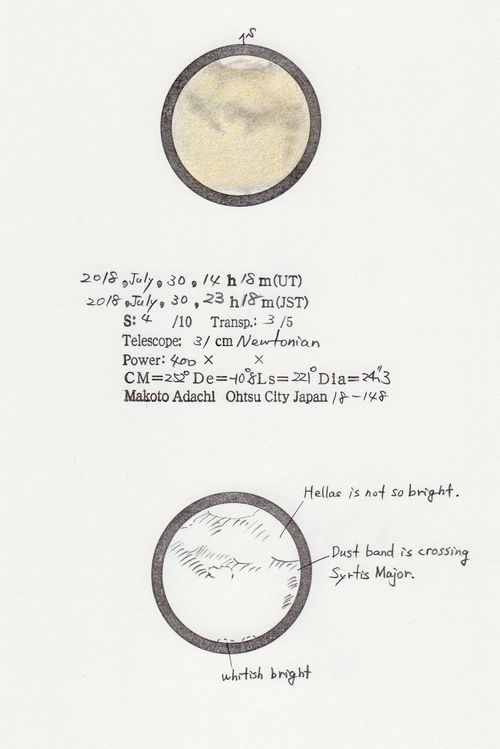 S
2018, July, 30, 14 h 18 m (UT)
2018, July, 30, 23 h 18 m (JST)
S: 4 /10 Transp.: 3 /5
Telescope: 31 cm Newtonian
Power: 400 × ×
CM=252° De=-10.°8 Ls=221° Dia=24."3
Makoto Adachi Ohtsu City Japan 18-148
Hellas is not so bright.
Dust band is crossing
Syrtis Major.
whitish bright